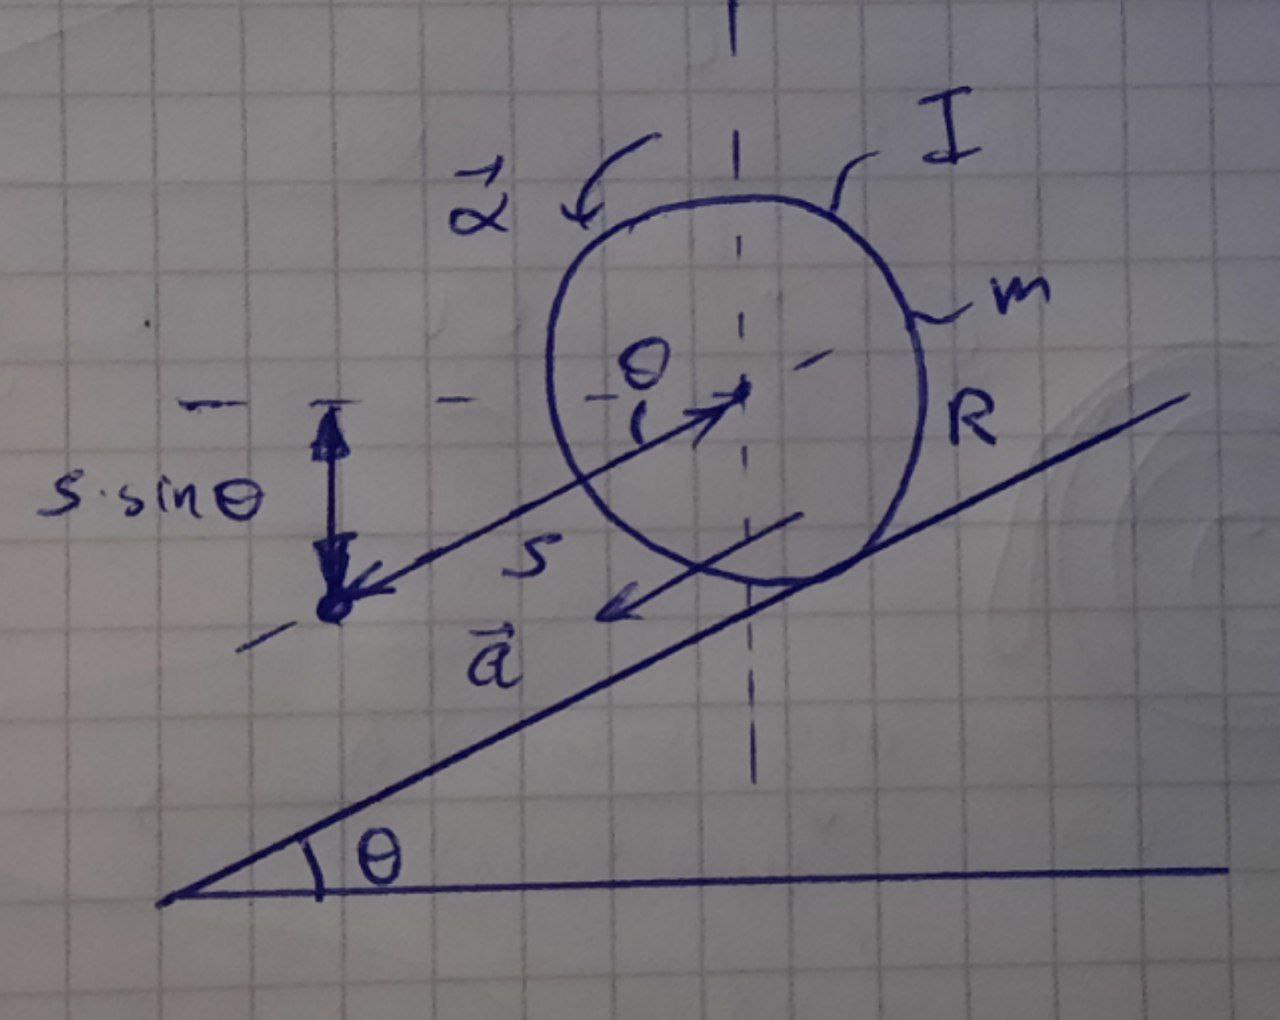 I
α⃗
m
θ
R
s·sinθ
s
a⃗
θ